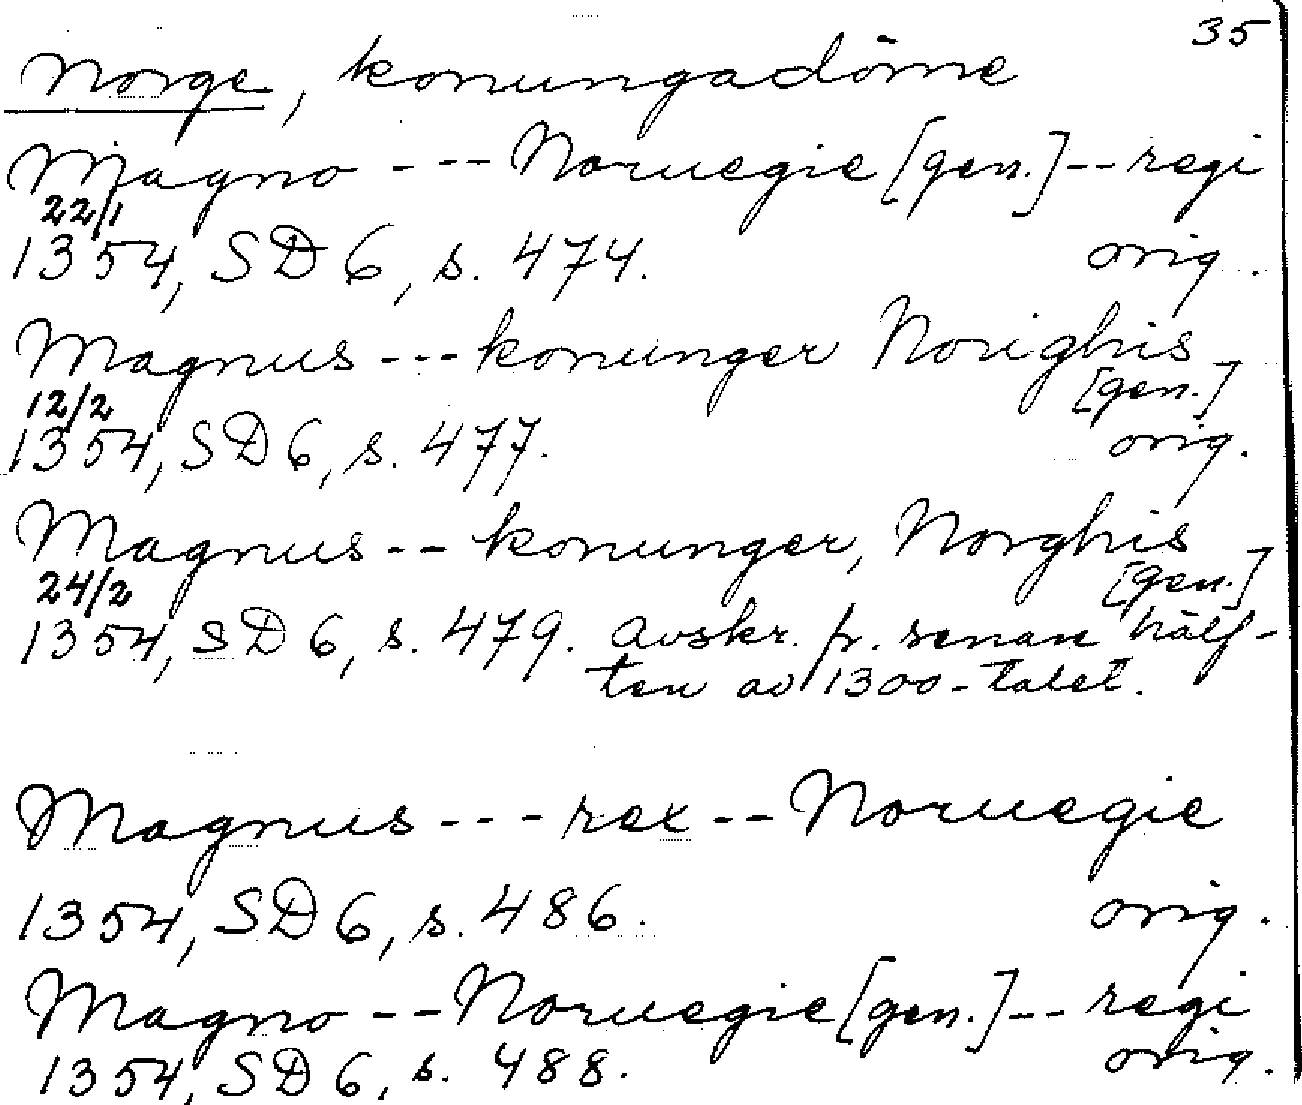 35
Norge, konungadöme
Magno --- Noruegie [gen.] -- regi
22/1
1354, SD 6, s. 474. orig.
Magnus --- konunger Norighis
[gen.]
12/2
1354, SD 6, s. 477. orig.
Magnus -- konunger, Norghis
[gen.]
24/2
1354, SD 6, s. 479. avskr. fr. senare hälf-
ten av 1300-talet.
Magnus --- rex -- Noruegie
1354, SD 6, s. 486. orig.
Magno -- Noruegie [gen.] -- regi
1354, SD 6, s. 488. orig.